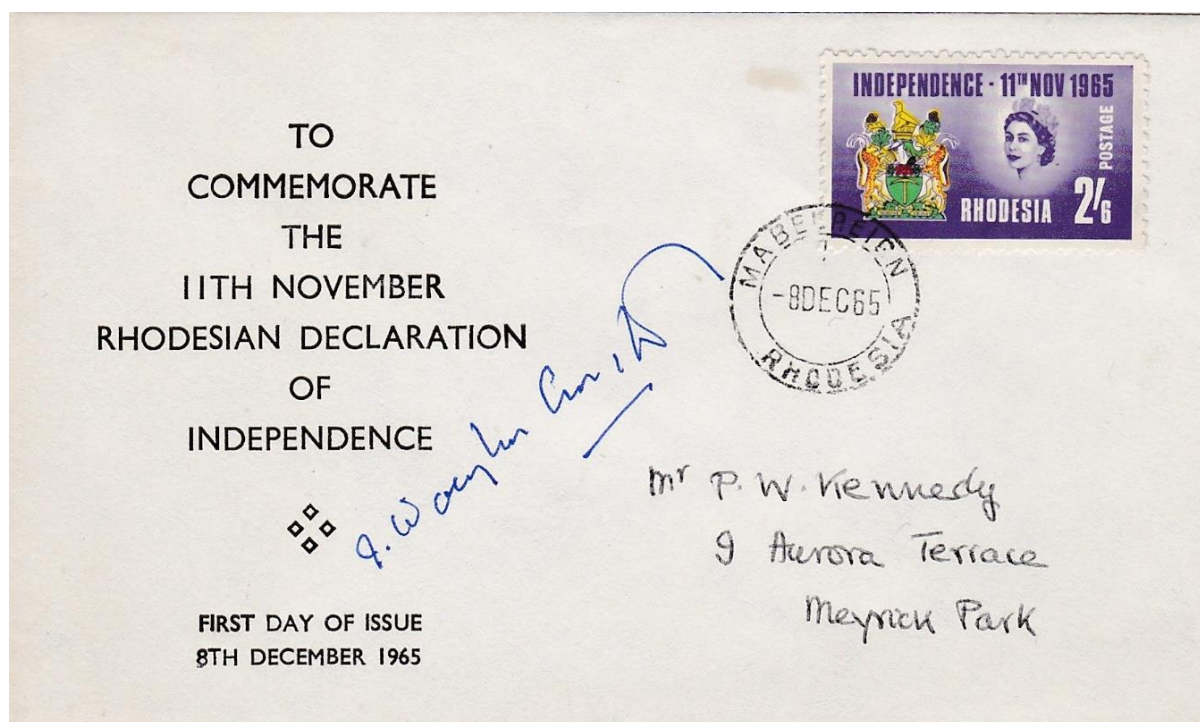 TO
COMMEMORATE
THE
11TH NOVEMBER
RHODESIAN DECLARATION
OF
INDEPENDENCE
FIRST DAY OF ISSUE
8TH DECEMBER 1965
INDEPENDENCE · 11TH NOV 1965
POSTAGE
RHODESIA 2/6
-8DEC65
RHODESIA
Mr P. W. Kennedy
9 Aurora Terrace
Meyrick Park